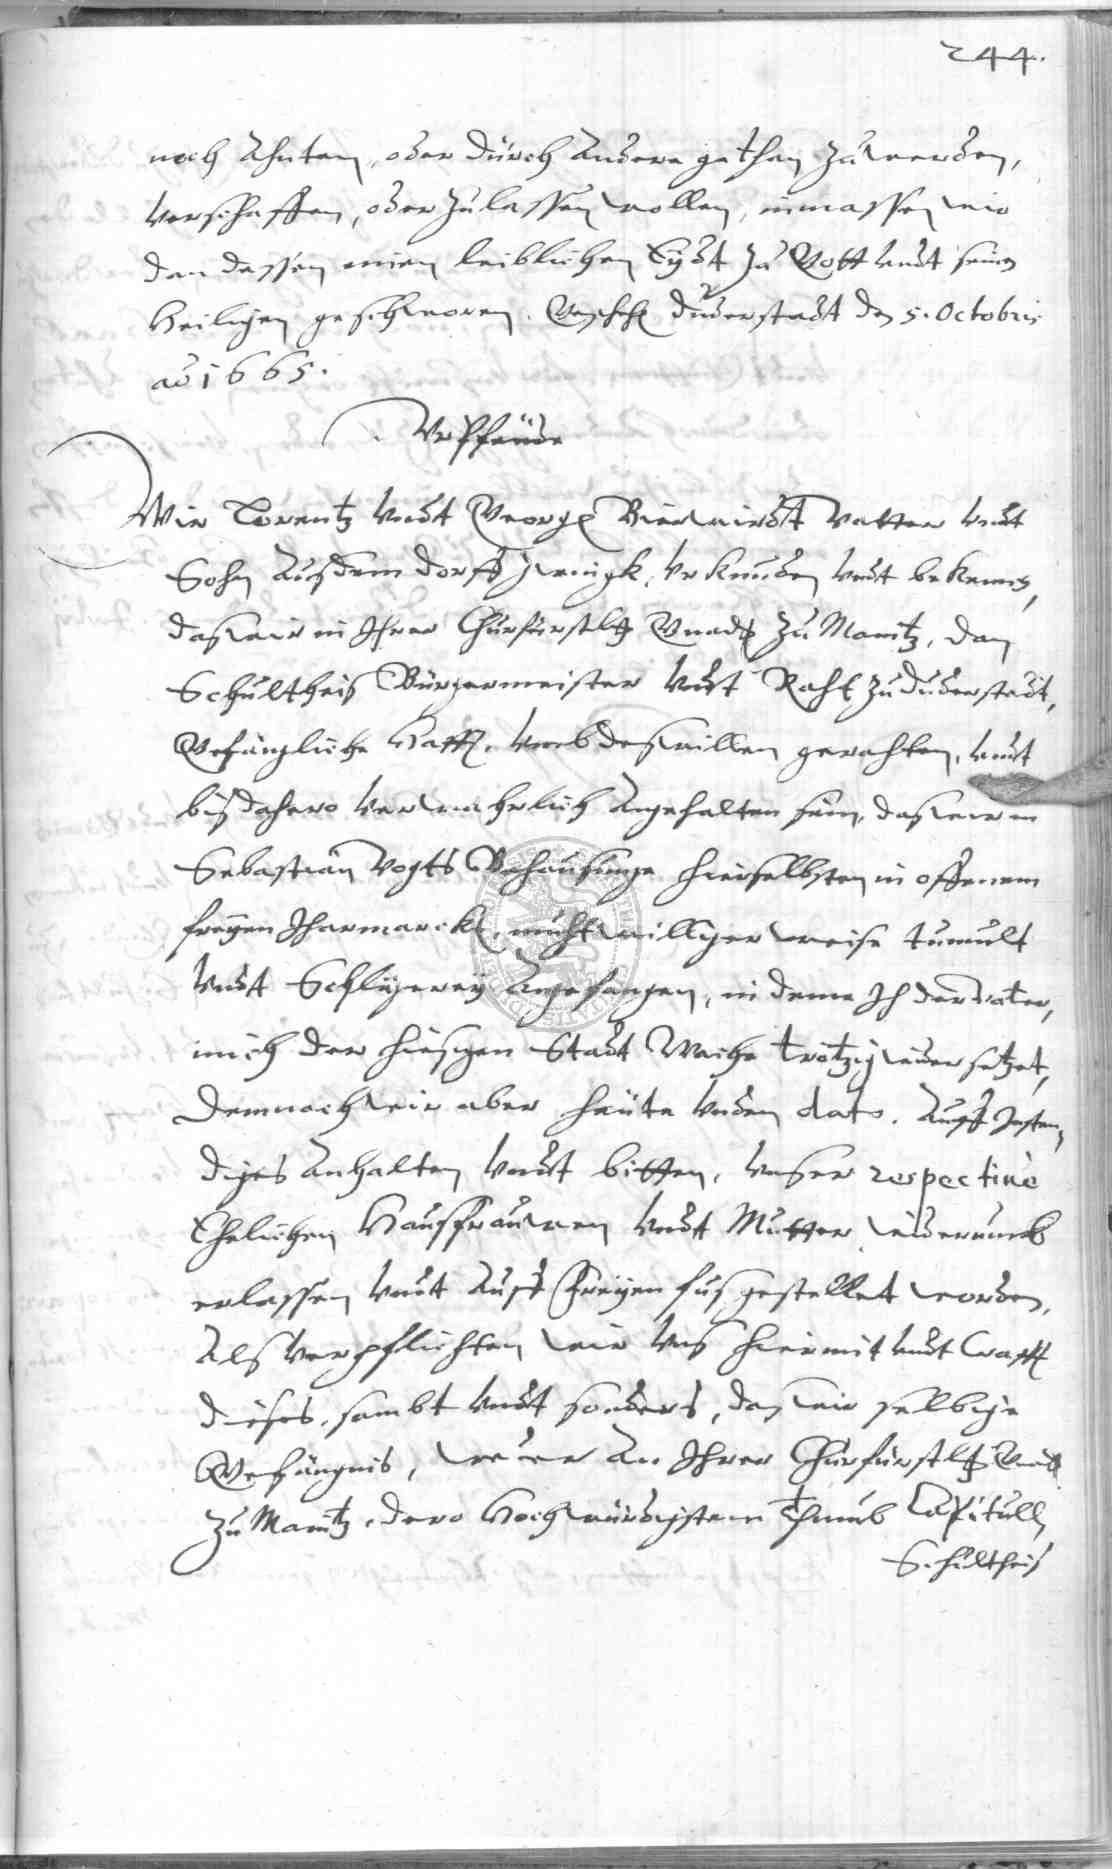 244.
noch Ahnten, oder durch Andere gethan zu werden,
verschaffen, oder zulassen wollen, inmassen wir
dan dessen einen leiblichen Eydt zu Gott undt seinen
Heiligen geschworen. Duderstadt den 5. Octobris
ao 1665.
Urpfeude
Wir Lorentz undt Georg Bierwirdt Vatter undt
Sohn Aus dem dorff urkunden undt bekennen,
das wir in Ihrer Churfürstlg Gnad zu Maintz, dan
Schultheis Bürgermeister undt Raht zu duderstadt,
Gefängliche Hafft, umb deswillen gerahten, undt
bis dahero verwahrlich Angehalten sein, das wir in
Sebastian Vogts Behausunge hierselbsten in offenem
freyen Jharmarckt, muhtwilliger weise tumult
undt Schlegerey Angefangen, in deme Ich der vater,
mich der hiesigen Stadt Wache trotzig widersetzet,
demnach wir aber heüte unden dato. Auff Insten,,
diges Anhalten undt bitten, unser respective
Ehelichen Hausfrauwen undt Mutter widerumb
erlassen undt Auff freyen fus gestellet worden,
Als verpflichten wir uns hiermit undt Crafft
dieses, sambt undt sonders, das wir selbige
Gefängnis, weder An Ihrer Churfürstlg Gnad
zu Maintz, dero Hochwürdigstem Thumb Capitull,
Schultheis